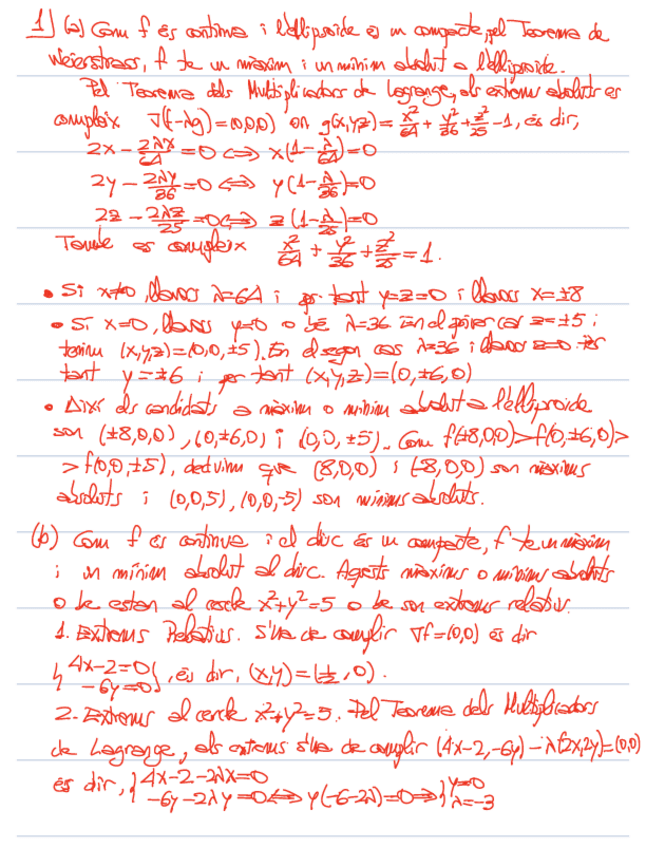 1) (a) Com f és contínua i l'el·lipsoide és un compacte, pel Teorema de
Weierstrass, f té un màxim i un mínim absolut a l'el·lipsoide.
Pel Teorema dels Multiplicadors de Lagrange, els extrems absoluts es
compleix ∇(f-λg)=(0,0,0) on g(x,y,z)= x²/64 + y²/36 + z²/25 - 1, és dir,
2x - 2λx/64 = 0 ⟺ x(1-λ/64)=0
2y - 2λy/36 = 0 ⟺ y(1-λ/36)=0
2z - 2λz/25 = 0 ⟺ z(1-λ/25)=0
També es compleix x²/64 + y²/36 + z²/25 = 1.
• Si x≠0, llavors λ=64 i per tant y=z=0 i llavors x=±8
• Si x=0, llavors y=0 o bé λ=36. En el primer cas z=±5 i
tenim (x,y,z)=(0,0,±5). En el segon cas λ=36 i llavors z=0. Per
tant y=±6 i per tant (x,y,z)=(0,±6,0)
• Així els candidats a màxim o mínim absolut a l'el·lipsoide
són (±8,0,0), (0,±6,0) i (0,0,±5). Com f(±8,0,0)>f(0,±6,0)>
>f(0,0,±5), deduïm que (8,0,0) i (-8,0,0) són màxims
absoluts i (0,0,5), (0,0,-5) són mínims absoluts.
(b) Com f és contínua i el disc és un compacte, f té un màxim
i un mínim absolut al disc. Aquests màxims o mínims absoluts
o bé estan al cercle x²+y²=5 o bé són extrems relatius.
1. Extrems Relatius. S'ha de complir ∇f=(0,0) és dir
{4x-2=0
-6y=0}, és dir, (x,y)=(1/2,0).
2. Extrems al cercle x²+y²=5. Pel Teorema dels Multiplicadors
de Lagrange, els extrems s'ha de complir (4x-2,-6y)-λ(2x,2y)=(0,0)
és dir, {4x-2-2λx=0
-6y-2λy=0 ⟺ y(-6-2λ)=0 ⟹ {y=0
λ=-3